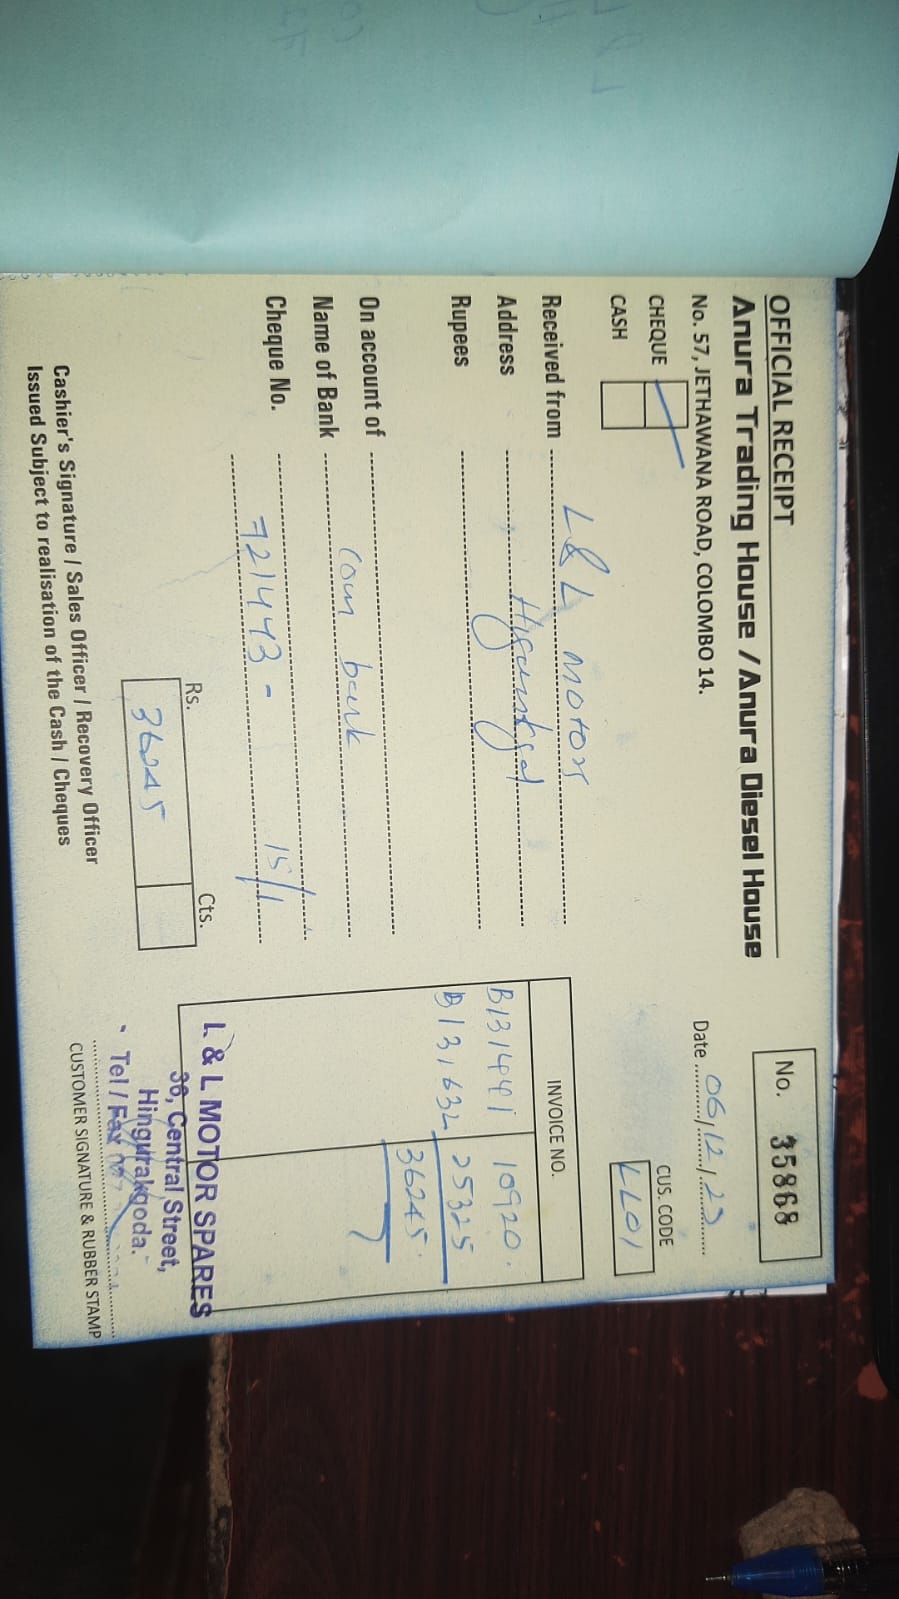 OFFICIAL RECEIPT
Anura Trading House / Anura Diesel House
No. 57, JETHAWANA ROAD, COLOMBO 14.
No. 35868
Date 06/12/23
CHEQUE
CASH
CUS. CODE
LL01
Received from L & L motors
Address
Rupees
On account of
Name of Bank com bank
Cheque No.
721443 - 15/1
INVOICE NO.
B131441 10920.
B131632 25325
36245.
Rs. Cts.
36245
L & L MOTOR SPARES
36, Central Street,
Hingurakgoda.
Tel / Fax
Cashier's Signature / Sales Officer / Recovery Officer
CUSTOMER SIGNATURE & RUBBER STAMP
Issued Subject to realisation of the Cash / Cheques